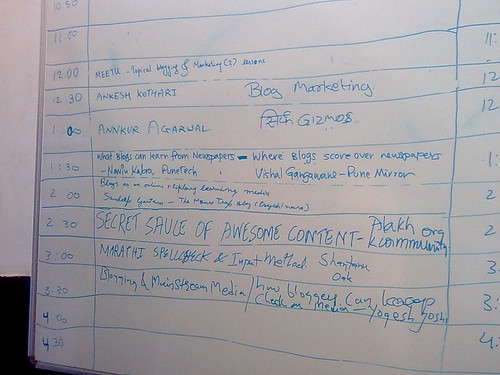 10 30
11:00
11:
12.00 MEETU - Topical blogging & Marketing (2) sessions 12
12 30 ANKESH KOTHARI Blog Marketing. 12
1 00 ANNKUR AGARWAL GIZMOS
1:30 What Blogs can learn from Newspapers - Where Blogs score over newspapers 1:
- Navin Kabra, PuneTech Vishal Gangawane - Pune Mirror
2 00 Blogs as an online + lifelong learning media 2
Sandeep Gautam - The Mouse Trap blog
2 30 SECRET SAUCE OF AWESOME CONTENT - Alakh org 2
Kcommunity
3:00 MARATHI SPELLCHECK & Input Method Shantanu 3
Oak
3.30 Blogging & MainStream Media / how blogger Can keep 3:
Check on Media - Yogesh Joshi
4 00
4:
4 30